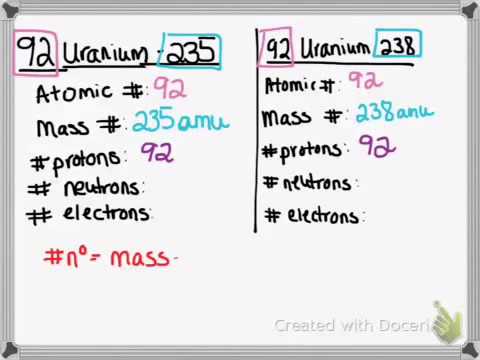 92 Uranium - 235
Atomic #: 92
Mass #: 235amu
# protons: 92
# neutrons:
# electrons:
92 Uranium 238
Atomic #: 92
Mass #: 238amu
# protons: 92
# neutrons:
# electrons:
#n° = mass -
Created with Doceri